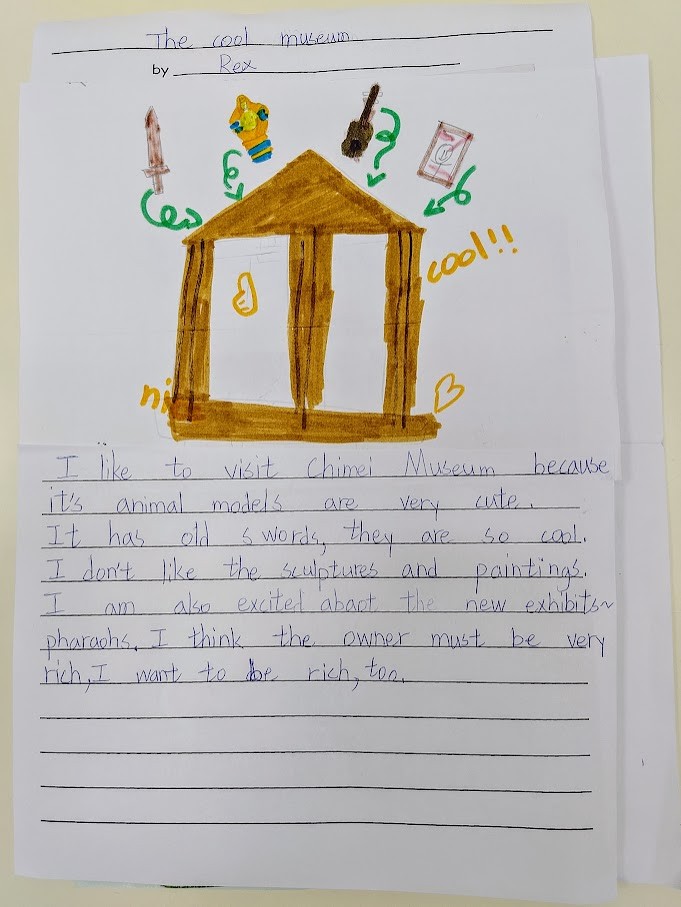 The cool museum
by Rex
cool!!
I like to visit Chimei Museum because
it's animal models are very cute.
It has old swords, they are so cool.
I don't like the sculptures and paintings.
I am also excited aboat the new exhibits~
pharaohs. I think the owner must be very
rich, I want to be rich, too.